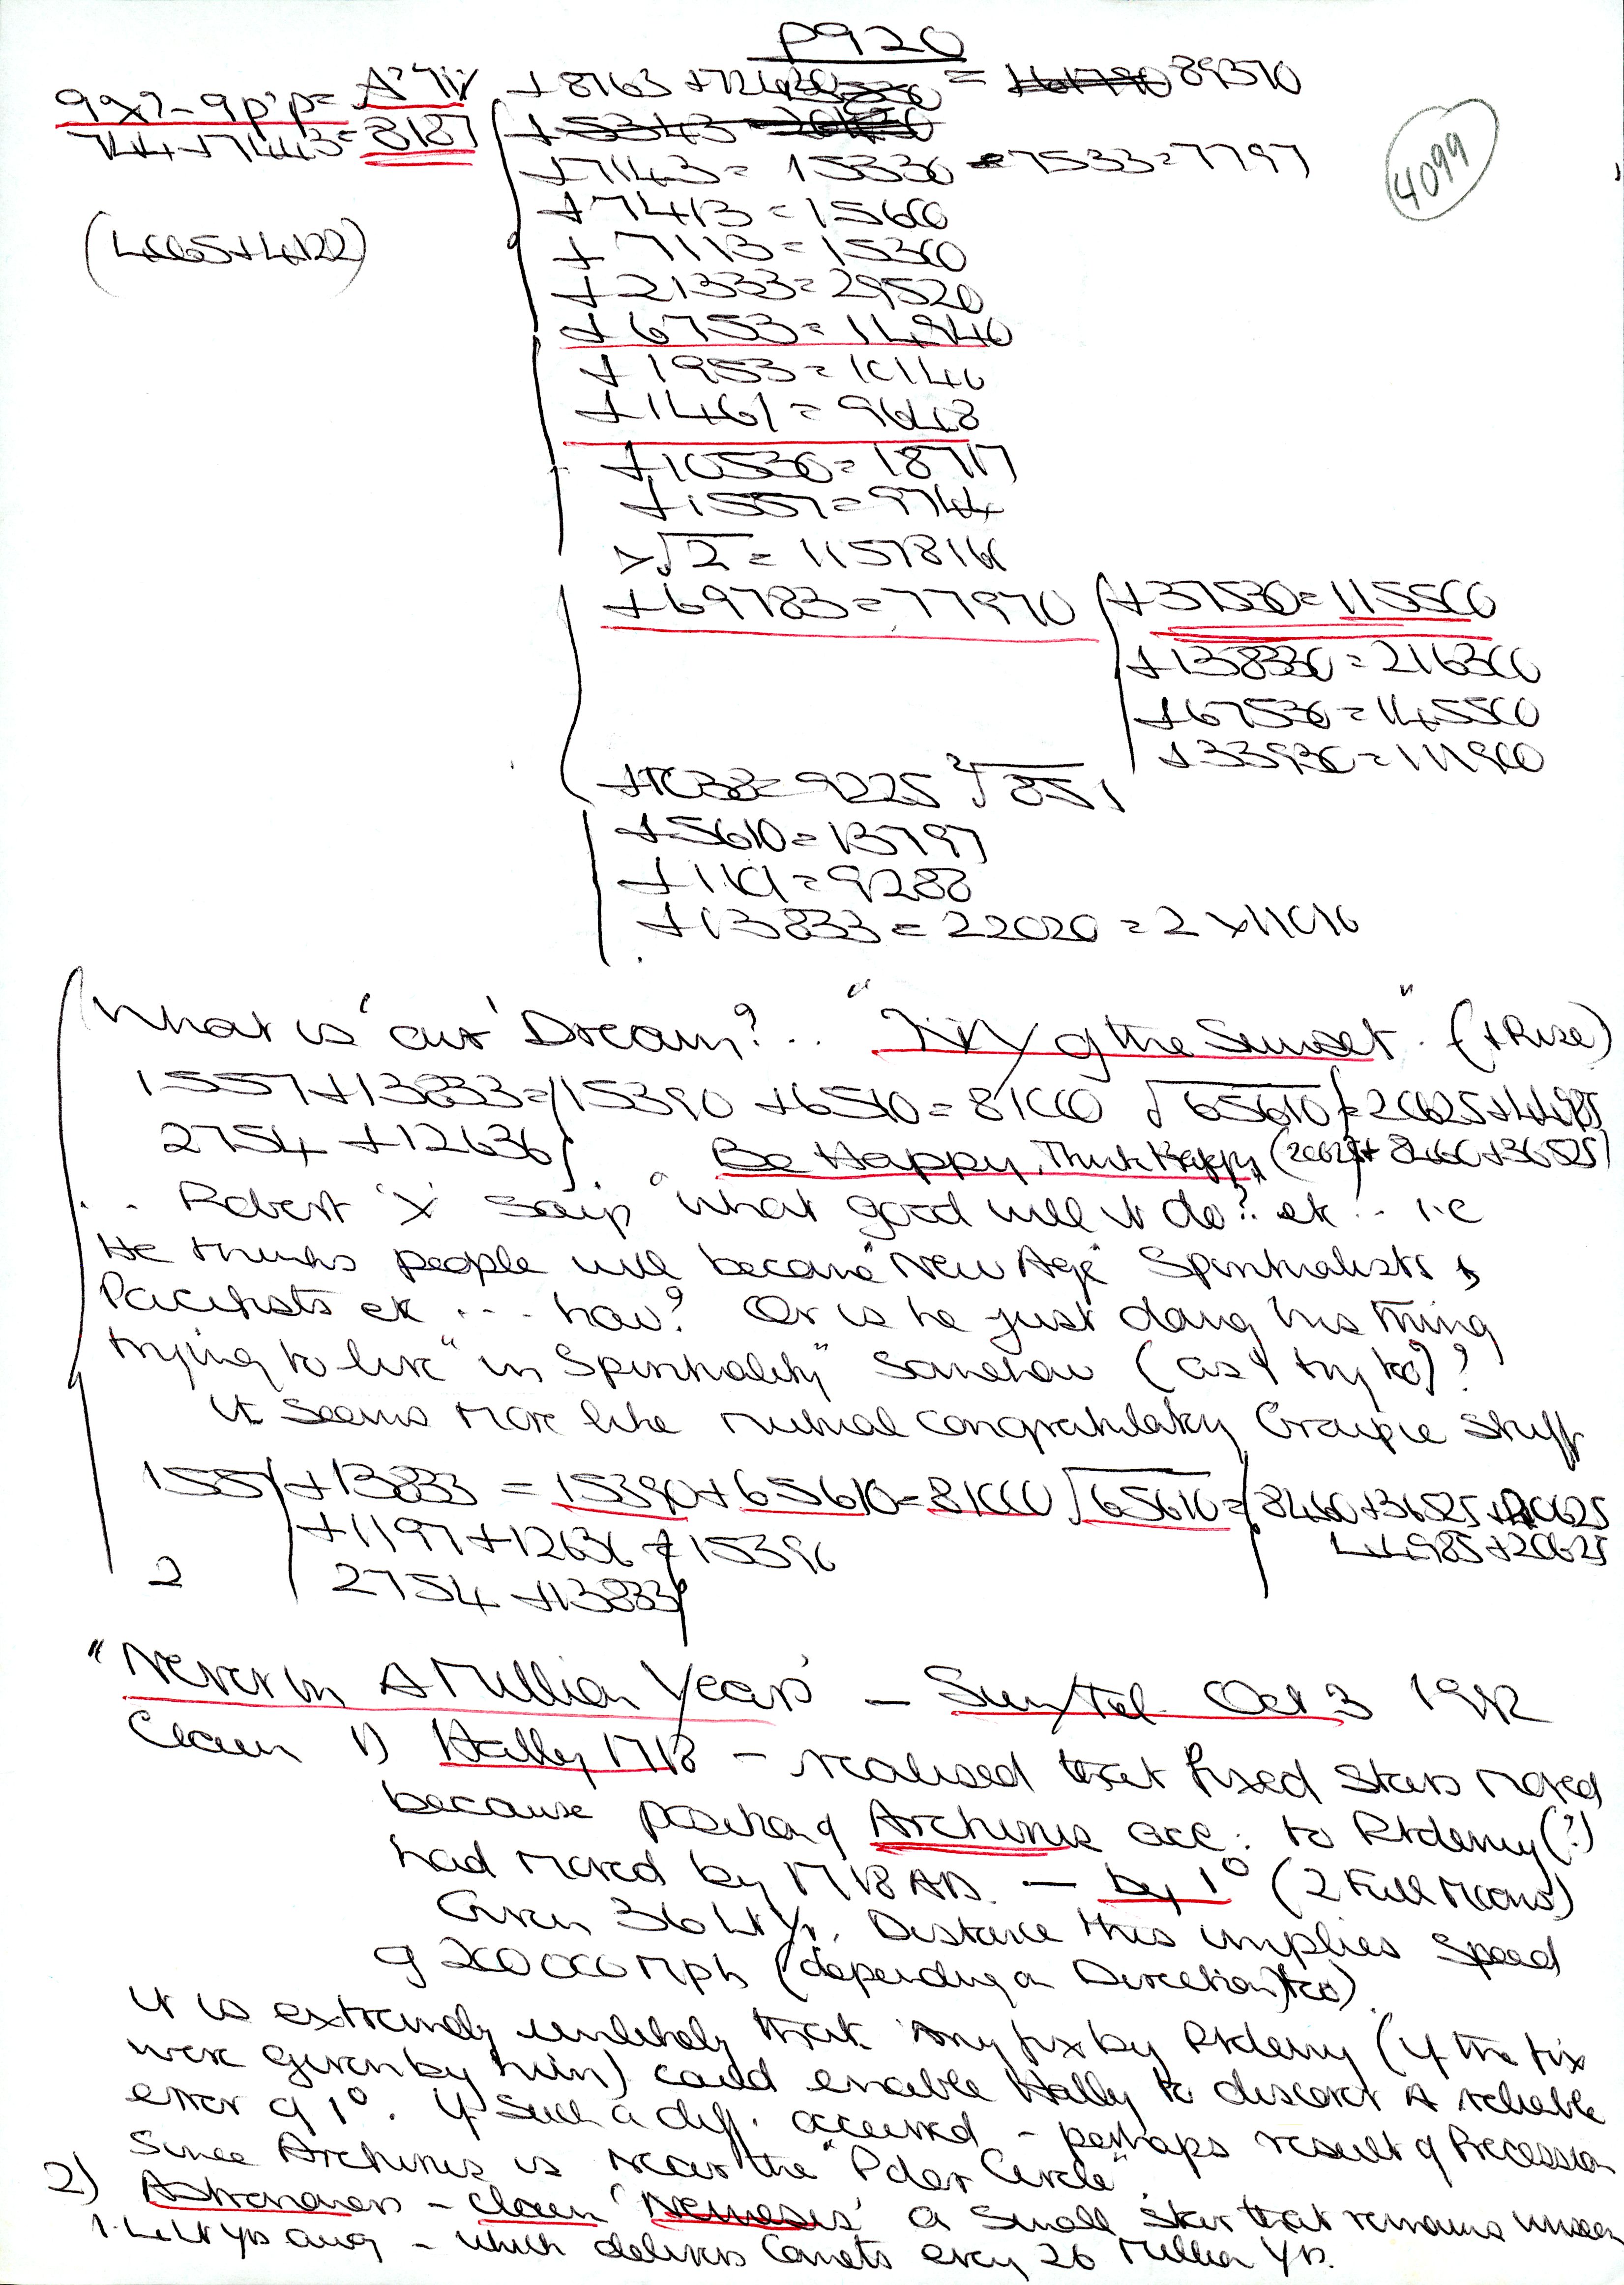 P920
+8763 + = 89370
744+7443=8187
+7143= 15330 - 7533=7797
4099
+7413=15600
(4065+4122)
+ 7113=15300
+21333=29520
+6753=14940
+1953=10140
+1461=9648
+10530=18717
+1557=9744
>√2=1157816
+69783=77970
+37530=115500
+138330=216300
+67530=145500
+33930=111900
+1038=9225 ∜851
+5610=13797
+1101=9288
+13833=22020=2×11010
What is 'our' Dream? .. " of the Sunset". (+Rise)
1557+13833=15390 +6510=81000 √65610=20625+44985
2754 +12636
Be Happy, Think Happy (20625+8460+36525)
.. Robert 'X' says "What good will it do? etc .. i.e
He thinks people will become "New Age" Spiritualists &
Pacifists etc ... how? Or is he just doing his Thing
trying to live "in Spirituality" Somehow (as I try to)?
It seems more like mutual congratulatory Groupie stuff
1557+13833 = 15390+65610=81000 √65610=8460+36525+20625
+1197+12636=15390
44985+20625
2 2754+13833
"Never in A Million Years" - Sun/Tel Oct 3 1982
Claim 1) Hally 1718 - realised that fixed Stars moved
because position of Archurus acc: to Ptolemy(?)
had moved by 1718 AD. - by 1° (2 Full Moons)
Given 36 Lt Yr. Distance this implies Speed
of 200000 Mph (depending on Direction) too).
It is extremely unlikely that Any fix by Ptolemy (if the fix
were given by him) could enable Hally to discover A reliable
error of 1°. If Such a diff. occurred - perhaps result of Precession
Since Archurus is near the "Polar Circle".
2) Astronomers - claim 'Nemesis' a Small Star that remains unseen
1.4 Lt yrs away - which delivers Comets every 26 Million Yrs.